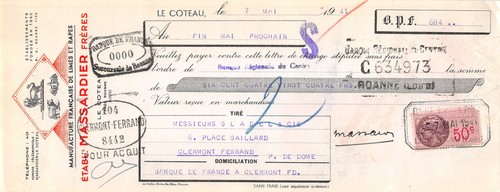 LE COTEAU, le 7 MAI 1941
B.P.F. 684
Au FIN MAI PROCHAIN
Veuillez payer contre cette lettre de change stipulée sans frais
l'ordre de Banque Régionale du Centre
la somme
SIX CENT QUATRE VINGT QUATRE FRS
Valeur reçue en marchandises
TIRÉ
MESSIEURS
6, PLACE GAILLARD
CLERMONT FERRAND P. DE DOME
DOMICILIATION
BANQUE DE FRANCE A CLERMONT FD.
SANS FRAIS
S
BANQUE RÉGIONALE DU CENTRE
C 634973
ROANNE (LOIRE)
BANQUE DE FRANCE
0000
Succursale de Roanne
104
CLERMONT-FERRAND
8442
POUR ACQUIT
MANUFACTURE FRANÇAISE DE LIMES ET RAPES
ETABLTS MASSARDIER FRÈRES
LE COTEAU
TÉLÉPHONE : 40
50c